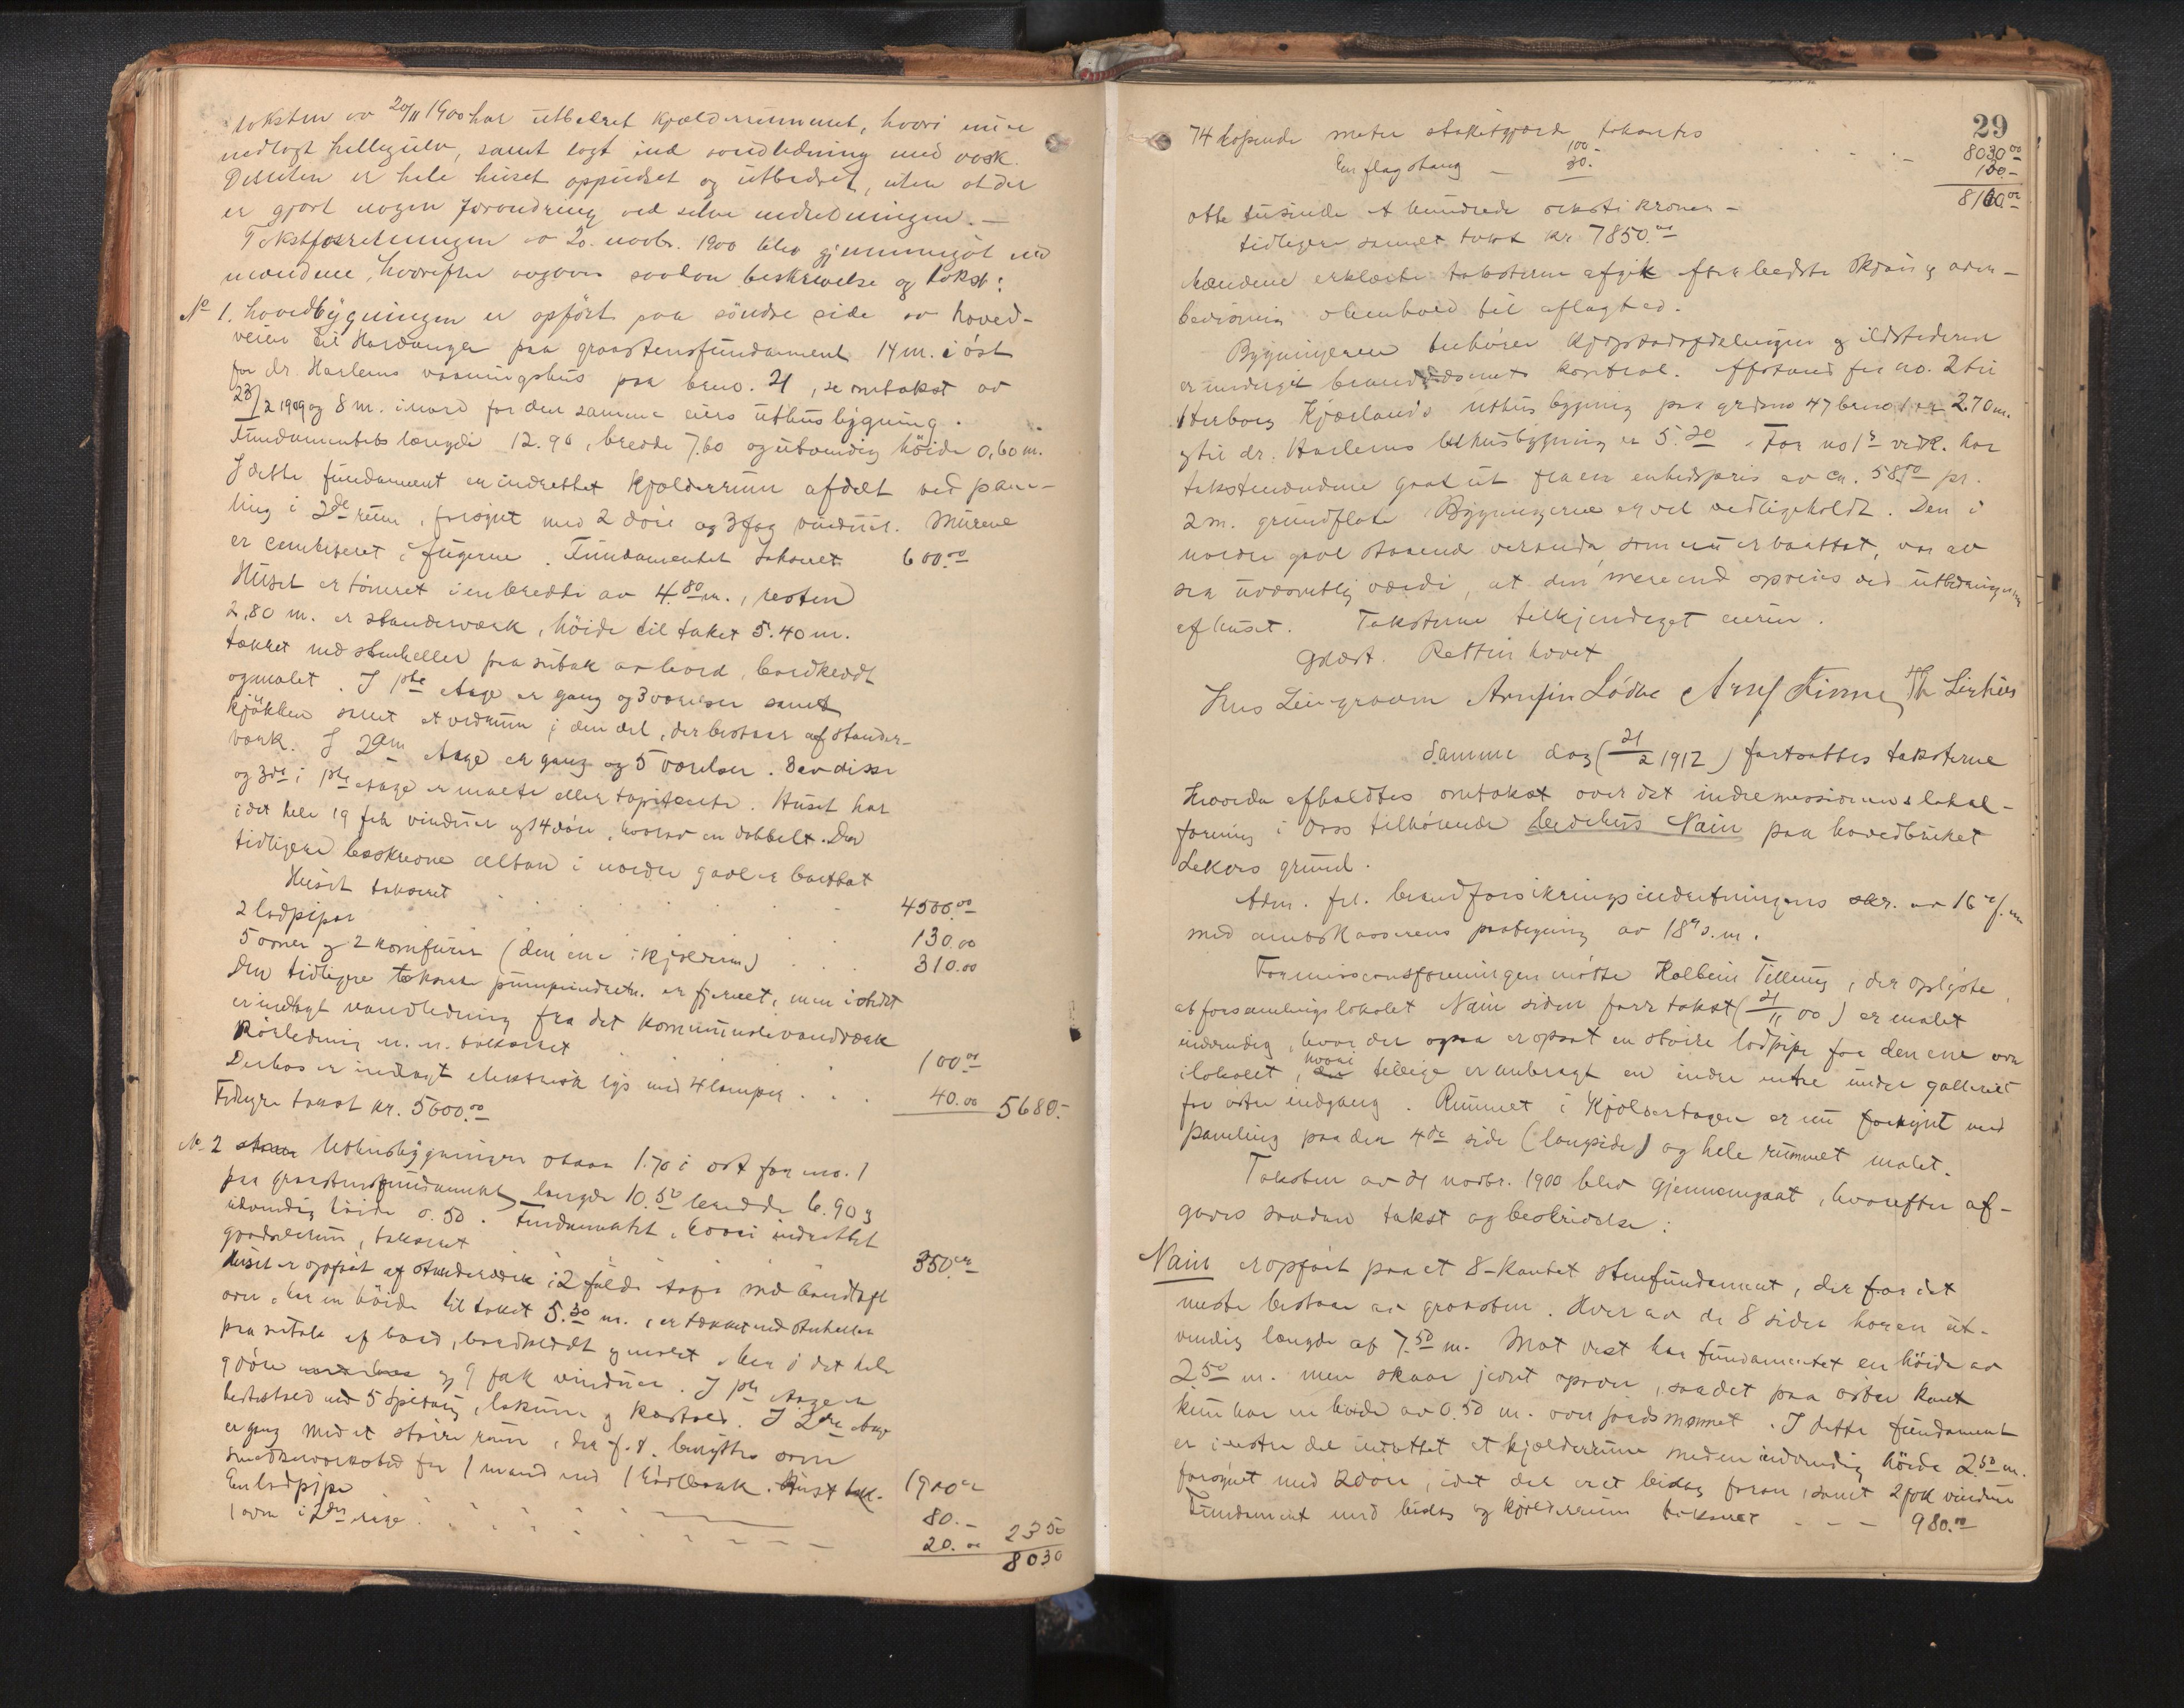 taksten av 20/11 1900 har utbedret kjælderrummet, hvori nu er
nedlagt hellegulv, samt lagt ind vandledning med vask.
Desuten er hele huset oppudset og utbedret, uten at der
er gjort nogen forandring ved selve indredningen. —
Takstforretningen av 20. novbr. 1900 blev gjennemgåt med
mændene, hvorefter avgaves saadan beskrivelse og takst:
No 1. Hovedbygningen er opført paa søndre side av hoved-
veien til Hardanger paa graastensfundament 14 m. i øst
for dr. Harlems vaaningshus paa brno. 21, se omtakst av
23/2 1909 og 8 m. i nord for den samme eiers uthusbygning.
Fundamentets længde 12.96, bredde 7.60 og utvendig höide 0,60 m.
I dette fundament er indrettet kjælderrum afdelt ved pane-
ling i 2de rum, forsynt med 2 döre og 3 fag vinduer. Murene
er cementeret i fugerne. Fundamentet takseret 600.00
Huset er tömret i en bredde av 4.80 m., resten
2,80 m. er standerværk, höide til taket 5.40 m.
tækket med stenheller paa sutak av bord, bordklædt
og malet. I 1ste etage er gang og 3 værelser samt
kjökken samt et vedrum i den del, der bestaar af stander-
værk. I 2den etage er gang og 5 værelser. 3 av disse
og 3de i 1ste etage er malte eller tapiserte. Huset har
i det hele 19 fak vinduer og 14 döre, hvorav en dobbelt. Den
tidligere beskrevne altan i nordre gavl er borttat
Huset takseret 4500.00
2 lodpiper 130.00
5 ovner og 2 komfurer (den ene i kjælderen) 310.00
Den tidligere takserte pumpeindretn. er fjernet, men istedet
er indlagt vandledning fra det kommunale vandværk
Rörledning m. m. takseret 100.00
Derhos er indlagt elektrisk lys med 4 lamper 40.00 5680.-
Tidligere takst kr. 5600.00
No 2 Uthusbygningen staar 1.70 i øst for no. 1
paa graastensfundament, længde 10.50 bredde 6.90 og
utvendig höide 0.50. Fundamentet, hvori indrettet
takseret 350.00
Huset er opfört af standerværk i 2 fulde etager med
over, har en höide til taket 5.30 m., er tækket med stenheller
paa sutak af bord, bordklædt og malet. Har i det hele
9 döre og 9 fak vinduer. I 1ste etage er
hestestald med 5 spiltaug, lokum og kostald. I 2den etage
er gang med et större rum, der f. t. benyttes som
snedkerværksted for 1 mand med 1 hövlbænk. Huset taks. 1900.00
En lodpipe 80.-
1 ovn i 2den etage 20.00 2350
8030
29
74 löpende meter stakitgjærde taksertes 100.-
8030.00
En flagstang 30.-
130.-
8160.00
otte tusinde et hundrede og seksti kroner —
tidligere samlet takst kr. 7850.00
Mændene erklærte taksterne afgit efter bedste skjön og over-
bevisning i henhold til aflagt ed.
Bygningerne tilhører og ildstederne
er undergit brandvæsenets kontrol. Afstand fra no. 2 til
Herborg Kjærlands uthusbygning paa grdsno 47 brno 1 er 2.70 m.
og til dr. Harlems uthusbygning er 5.20. For no 1s vedk. har
takstmændene gaat ut fra en enhedspris av ca. 58.00 pr.
2 m. grundflate. Bygningerne er vel vedlikeholdt. Den i
nordre gavl staaende veranda, som nu er borttat, var av
saa uvæsentlig værdi, at den mere end opveies ved utbedringerne
af huset. Taksterne tilkjendeget eieren.
Oplæst. Retten hævet
Arnfin Lödve Th Lirhus
Samme dag (21/2 1912) fortsattes taksterne
Hvorda afholdtes omtakst over det indremissionens lokal-
forening i Voss tilhörende bedehus Nain paa hovedbruket
Lekves grund.
Adm. frl. brandforsikringsindretningens skr. av 16de f. m.
med amtskasserens paategning av 18de s. m.
For missionsforeningen mötte Kolbein Tillung, der oplyste
at forsamlingslokalet Nain siden forr. takst (21/11 00) er malet
indvendig, hvor der ogsaa er opsat en större lodpipe for den ene ovn
i lokalet, hvori tillige er anbragt en indre entre under galleriet
for østre indgang. Rummet i Kjælderetagen er nu forsynt med
paneling paa den 4de side (langside) og hele rummet malet.
Taksten av 21 novbr. 1900 blev gjennemgaat, hvorefter af-
gaves saadan takst og beskrivelse:
Nain er opfört paa et 8-kantet stenfundament, der for det
meste bestaar av graasten. Hver av de 8 sider har en ut-
vendig længde af 7.50 m. Mot vest har fundamentet en höide av
2.50 m. men skraar jevnt opover, saa det paa østre kant
kun har en höide av 0.50 m. over jordsmonnet. I dette fundament
er i vestre del indrettet et kjælderrum med en indvendig höide 2.50 m.
forsynt med 2 döre, idet der er et bislag foran, samt 2 fak vinduer
Fundament med bislag og kjælderrum takseret — — — 980.00